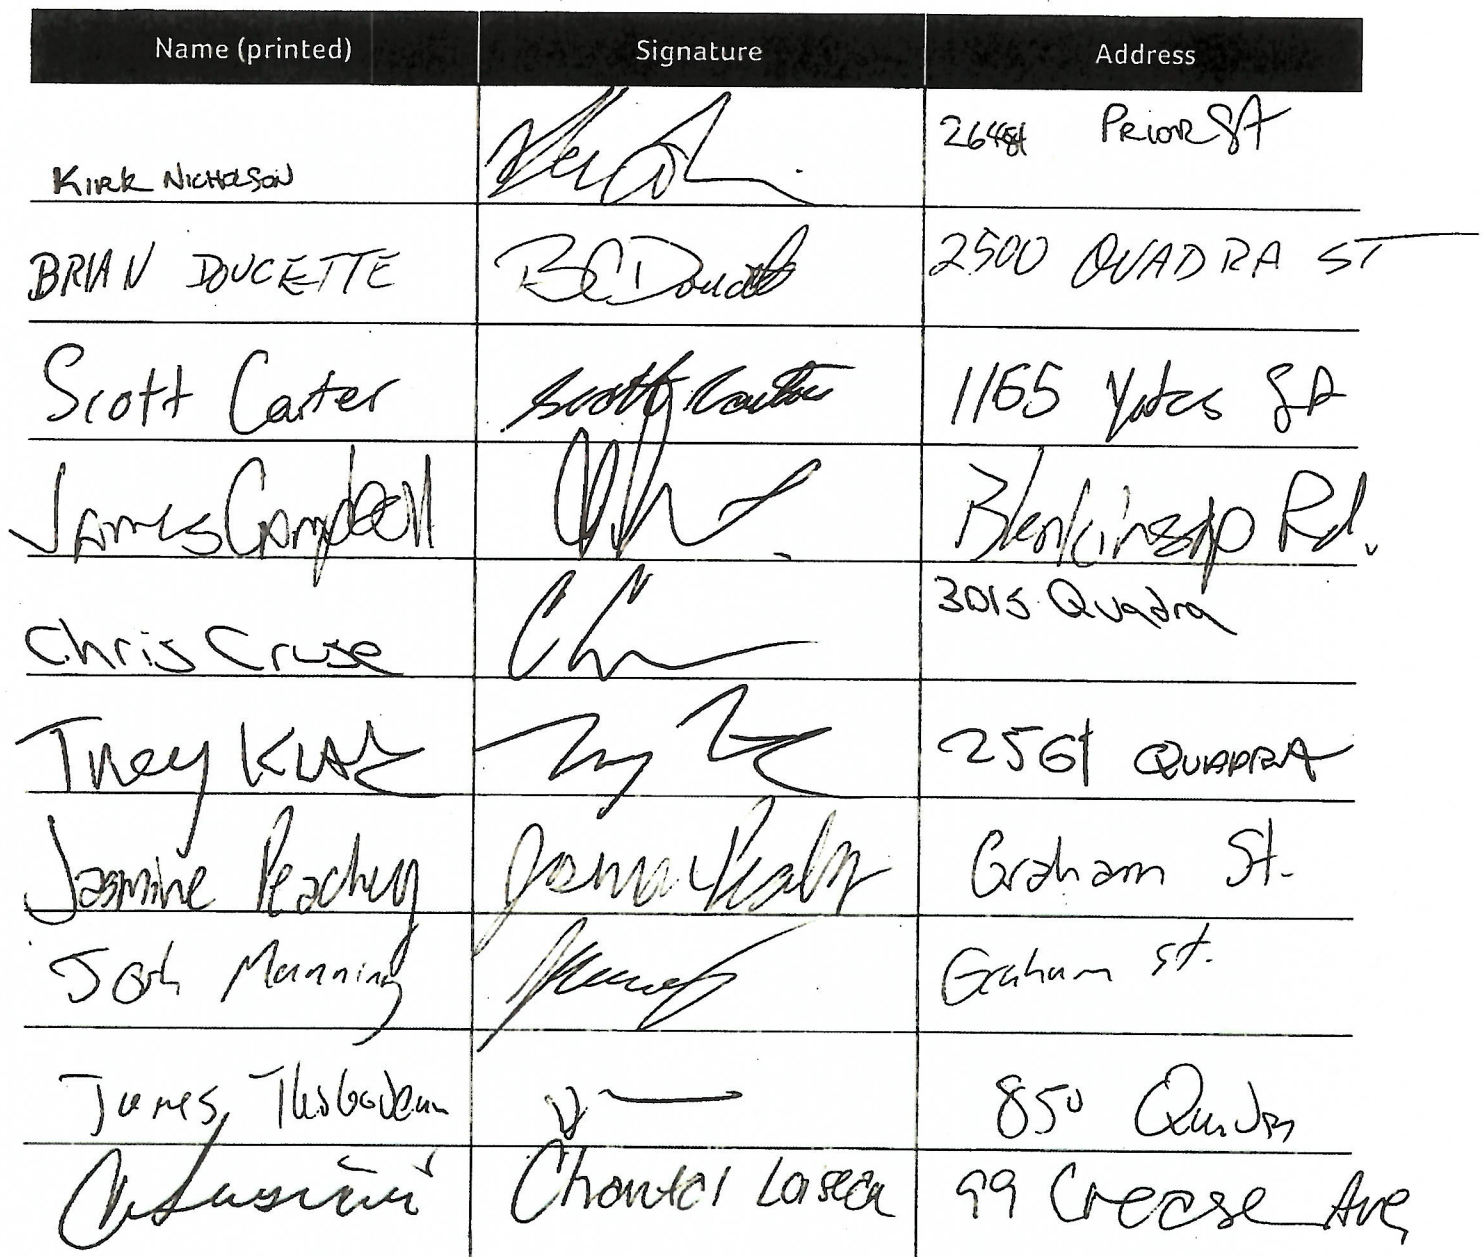 Name (printed) Signature Address
KIRK NICHOLSON PRIOR St
BRIAN DOUCETTE BC Doucette 2500 QUADRA ST
Scott Carter Scott Carter 1165 Yates St
James Campbell Blenkinsop Rd.
Chris Cruse 3015 Quadra
Trey 2561 QUADRA
Jasmine Peachey Graham St.
Josh Manning Graham St.
James Thibodeau 850 Quadra
Chantal 99 Crease Ave